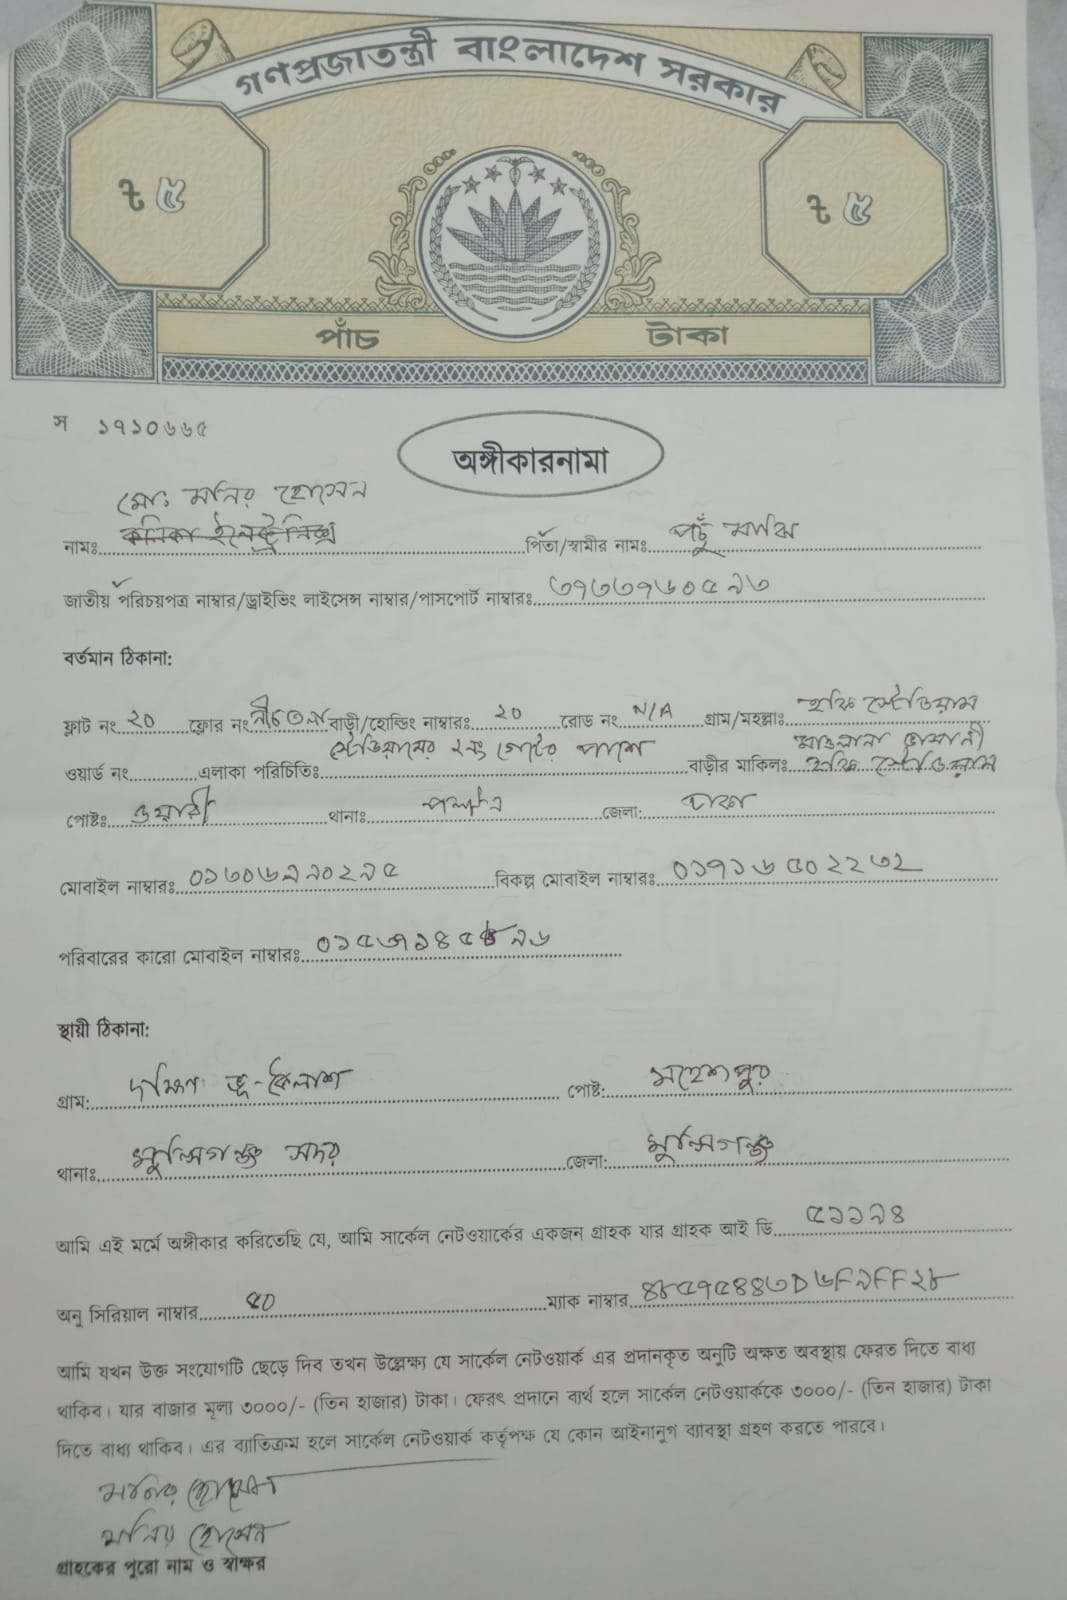 গণপ্রজাতন্ত্রী বাংলাদেশ সরকার
৳ ৫ ৳ ৫
পাঁচ টাকা
স ১৭১০৬৬৫
অঙ্গীকারনামা
মোঃ মনির হোসেন
নামঃ কনিকা ইলেক্ট্রনিক্স পিতা/স্বামীর নামঃ পচুঁ মাঝি
জাতীয় পরিচয়পত্র নাম্বার/ড্রাইভিং লাইসেন্স নাম্বার/পাসপোর্ট নাম্বারঃ ৩৭৩৩৭৬০৫৯৩
বর্তমান ঠিকানা:
ফ্লাট নং ২০ ফ্লোর নং নীচতলা বাড়ী/হোল্ডিং নাম্বারঃ ২০ রোড নং N/A গ্রাম/মহল্লাঃ হকি স্টেডিয়াম
ওয়ার্ড নং এলাকা পরিচিতিঃ স্টেডিয়ামের ২নং গেটের পাশে বাড়ীর মালিকঃ মাওলানা ভাসানী হকি স্টেডিয়াম
পোষ্টঃ ওয়ারী থানাঃ পল্টন জেলা: ঢাকা
মোবাইল নাম্বারঃ ০১৩০৬৯৯০২৯৫ বিকল্প মোবাইল নাম্বারঃ ০১৭১৬৫০২২৩২
পরিবারের কারো মোবাইল নাম্বারঃ
স্থায়ী ঠিকানা:
গ্রাম: দক্ষিণ ভূ-কৈলাশ পোষ্ট: মহেশপুর
থানাঃ মুন্সিগঞ্জ সদর জেলা: মুন্সিগঞ্জ
আমি এই মর্মে অঙ্গীকার করিতেছি যে, আমি সার্কেল নেটওয়ার্কের একজন গ্রাহক যার গ্রাহক আই ডি ৫১১৯৪
অনু সিরিয়াল নাম্বার ৫০ ম্যাক নাম্বার ৪৮৫৭৫৪৪৩D৬F৯FF২৮
আমি যখন উক্ত সংযোগটি ছেড়ে দিব তখন উল্লেক্ষ্য যে সার্কেল নেটওয়ার্ক এর প্রদানকৃত অনুটি অক্ষত অবস্থায় ফেরত দিতে বাধ্য
থাকিব। যার বাজার মূল্য ৩০০০/- (তিন হাজার) টাকা। ফেরৎ প্রদানে ব্যর্থ হলে সার্কেল নেটওয়ার্ককে ৩০০০/- (তিন হাজার) টাকা
দিতে বাধ্য থাকিব। এর ব্যাতিক্রম হলে সার্কেল নেটওয়ার্ক কর্তৃপক্ষ যে কোন আইনানুগ ব্যাবস্থা গ্রহণ করতে পারবে।
মনির হোসেন
মনির হোসেন
গ্রাহকের পুরো নাম ও স্বাক্ষর